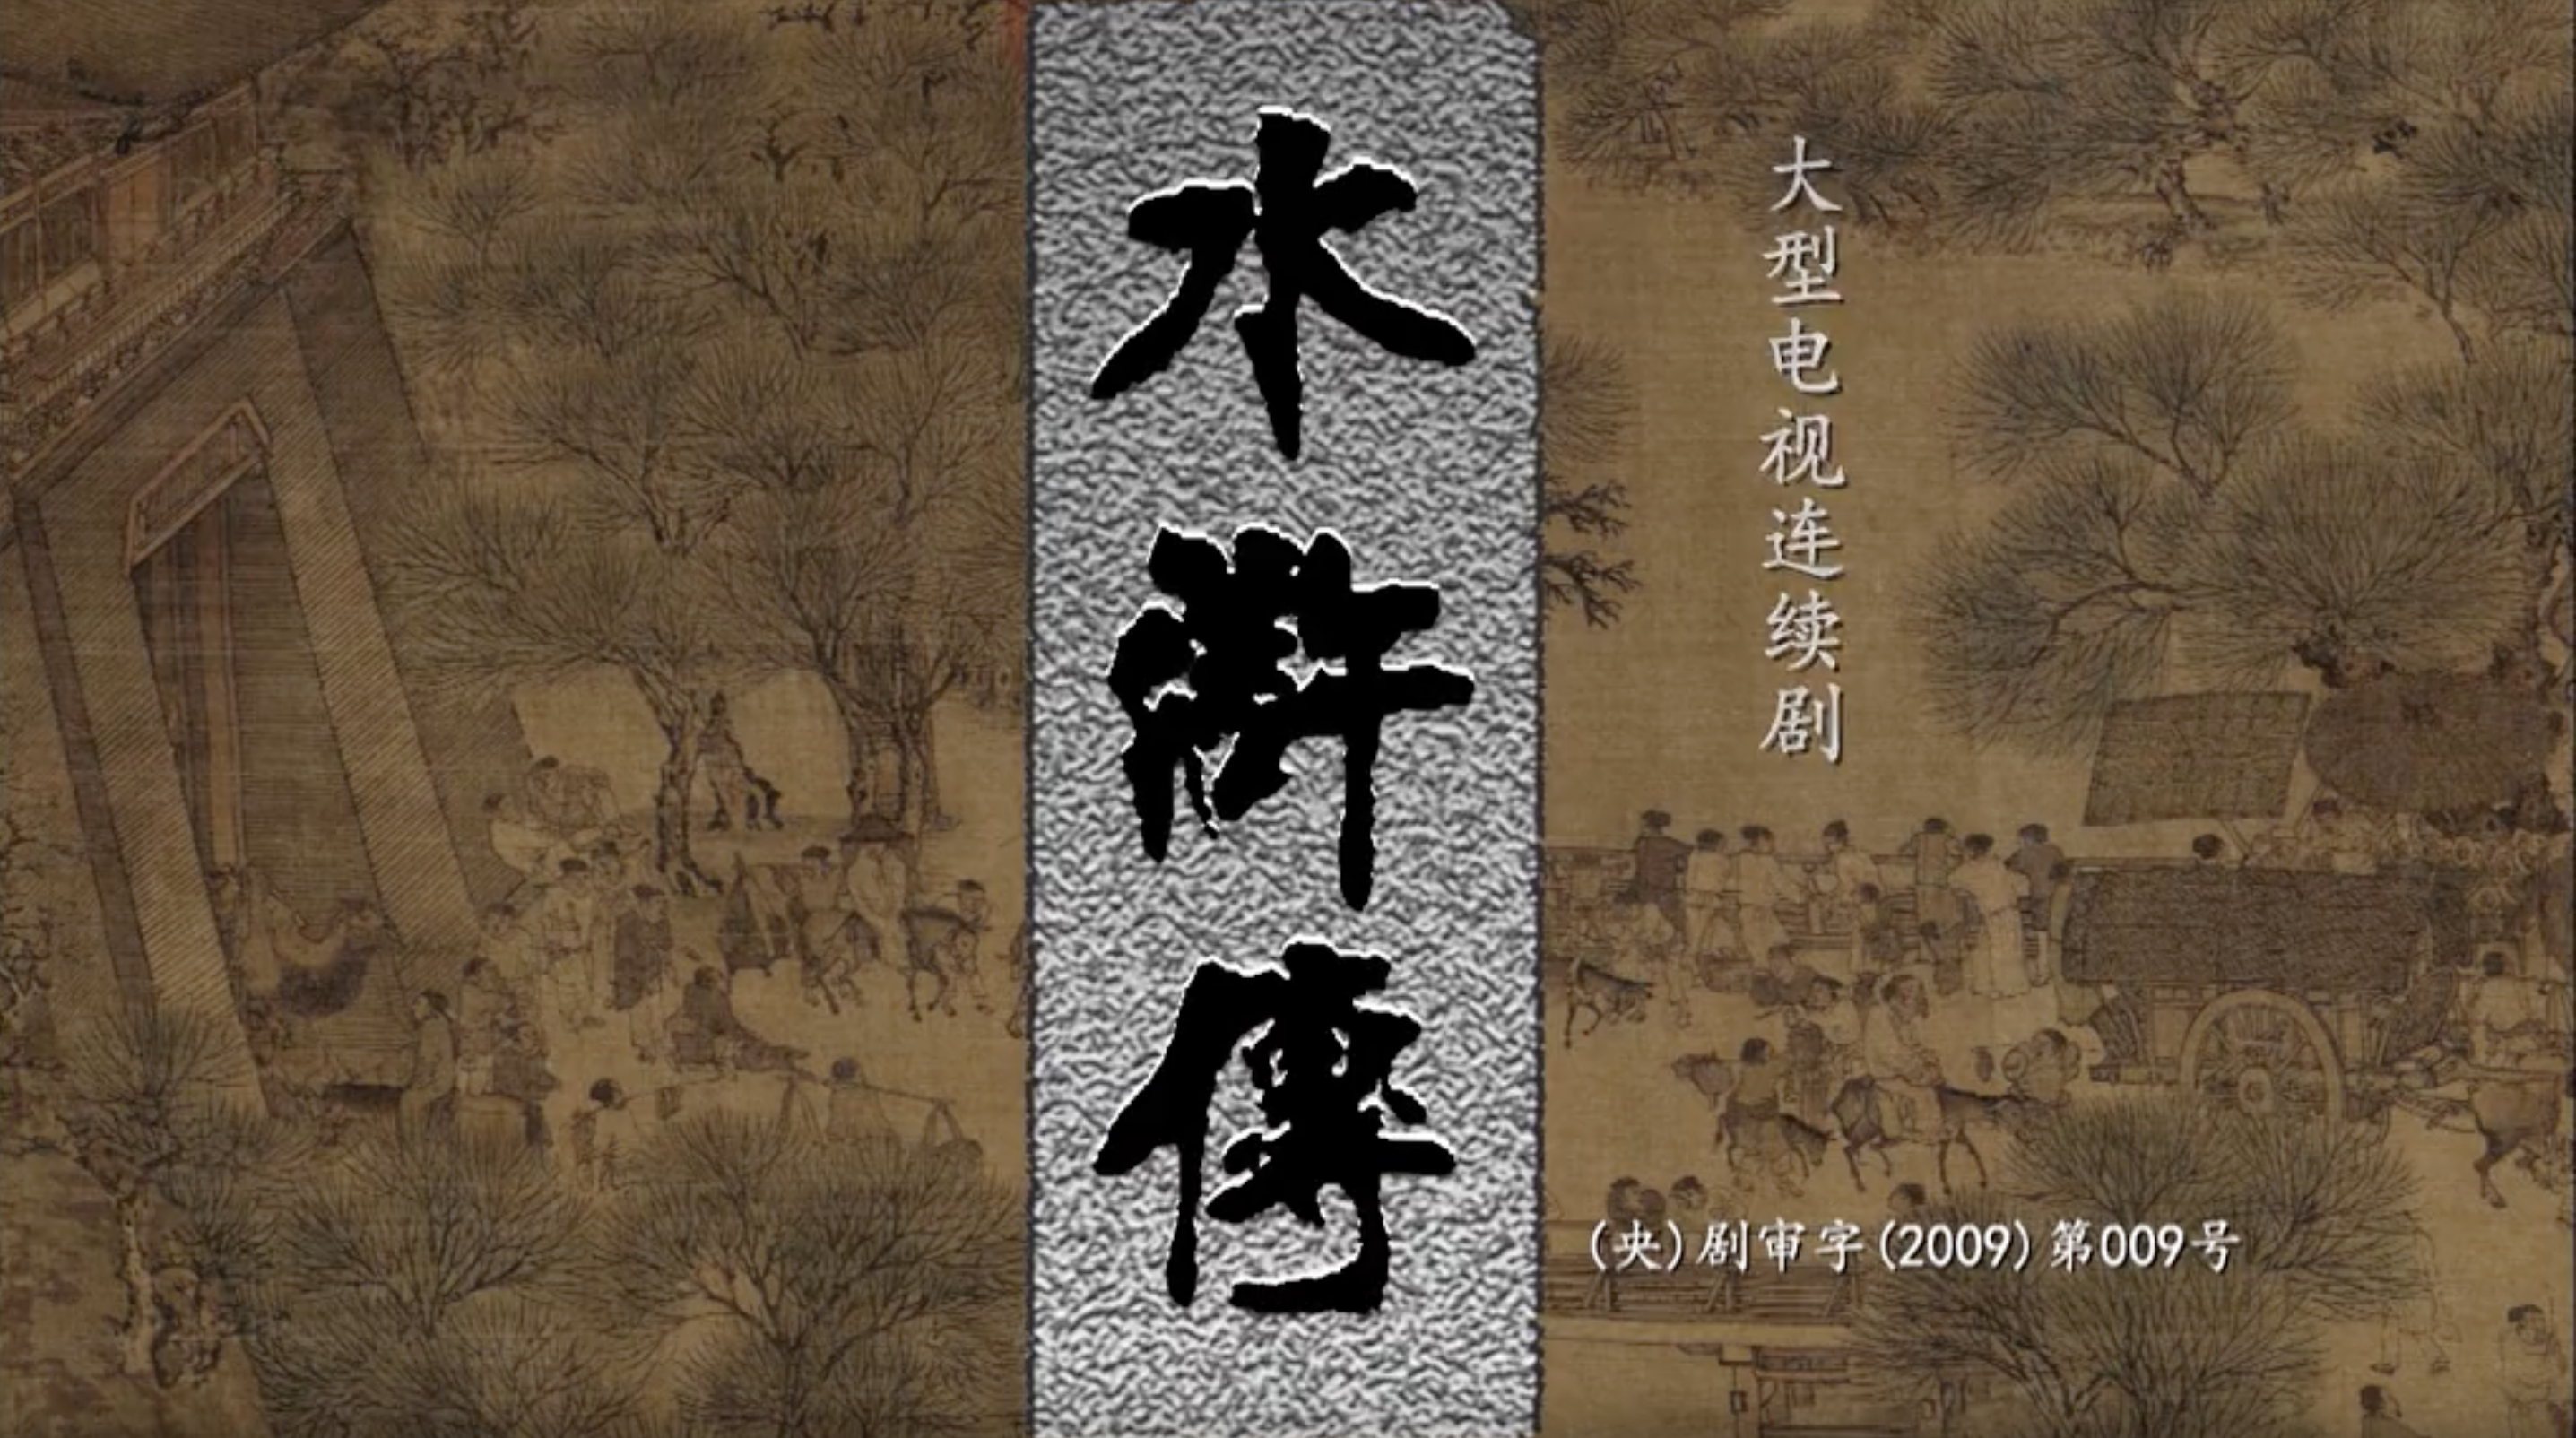 水滸傳
大型电视连续剧
(央)剧审字(2009)第009号